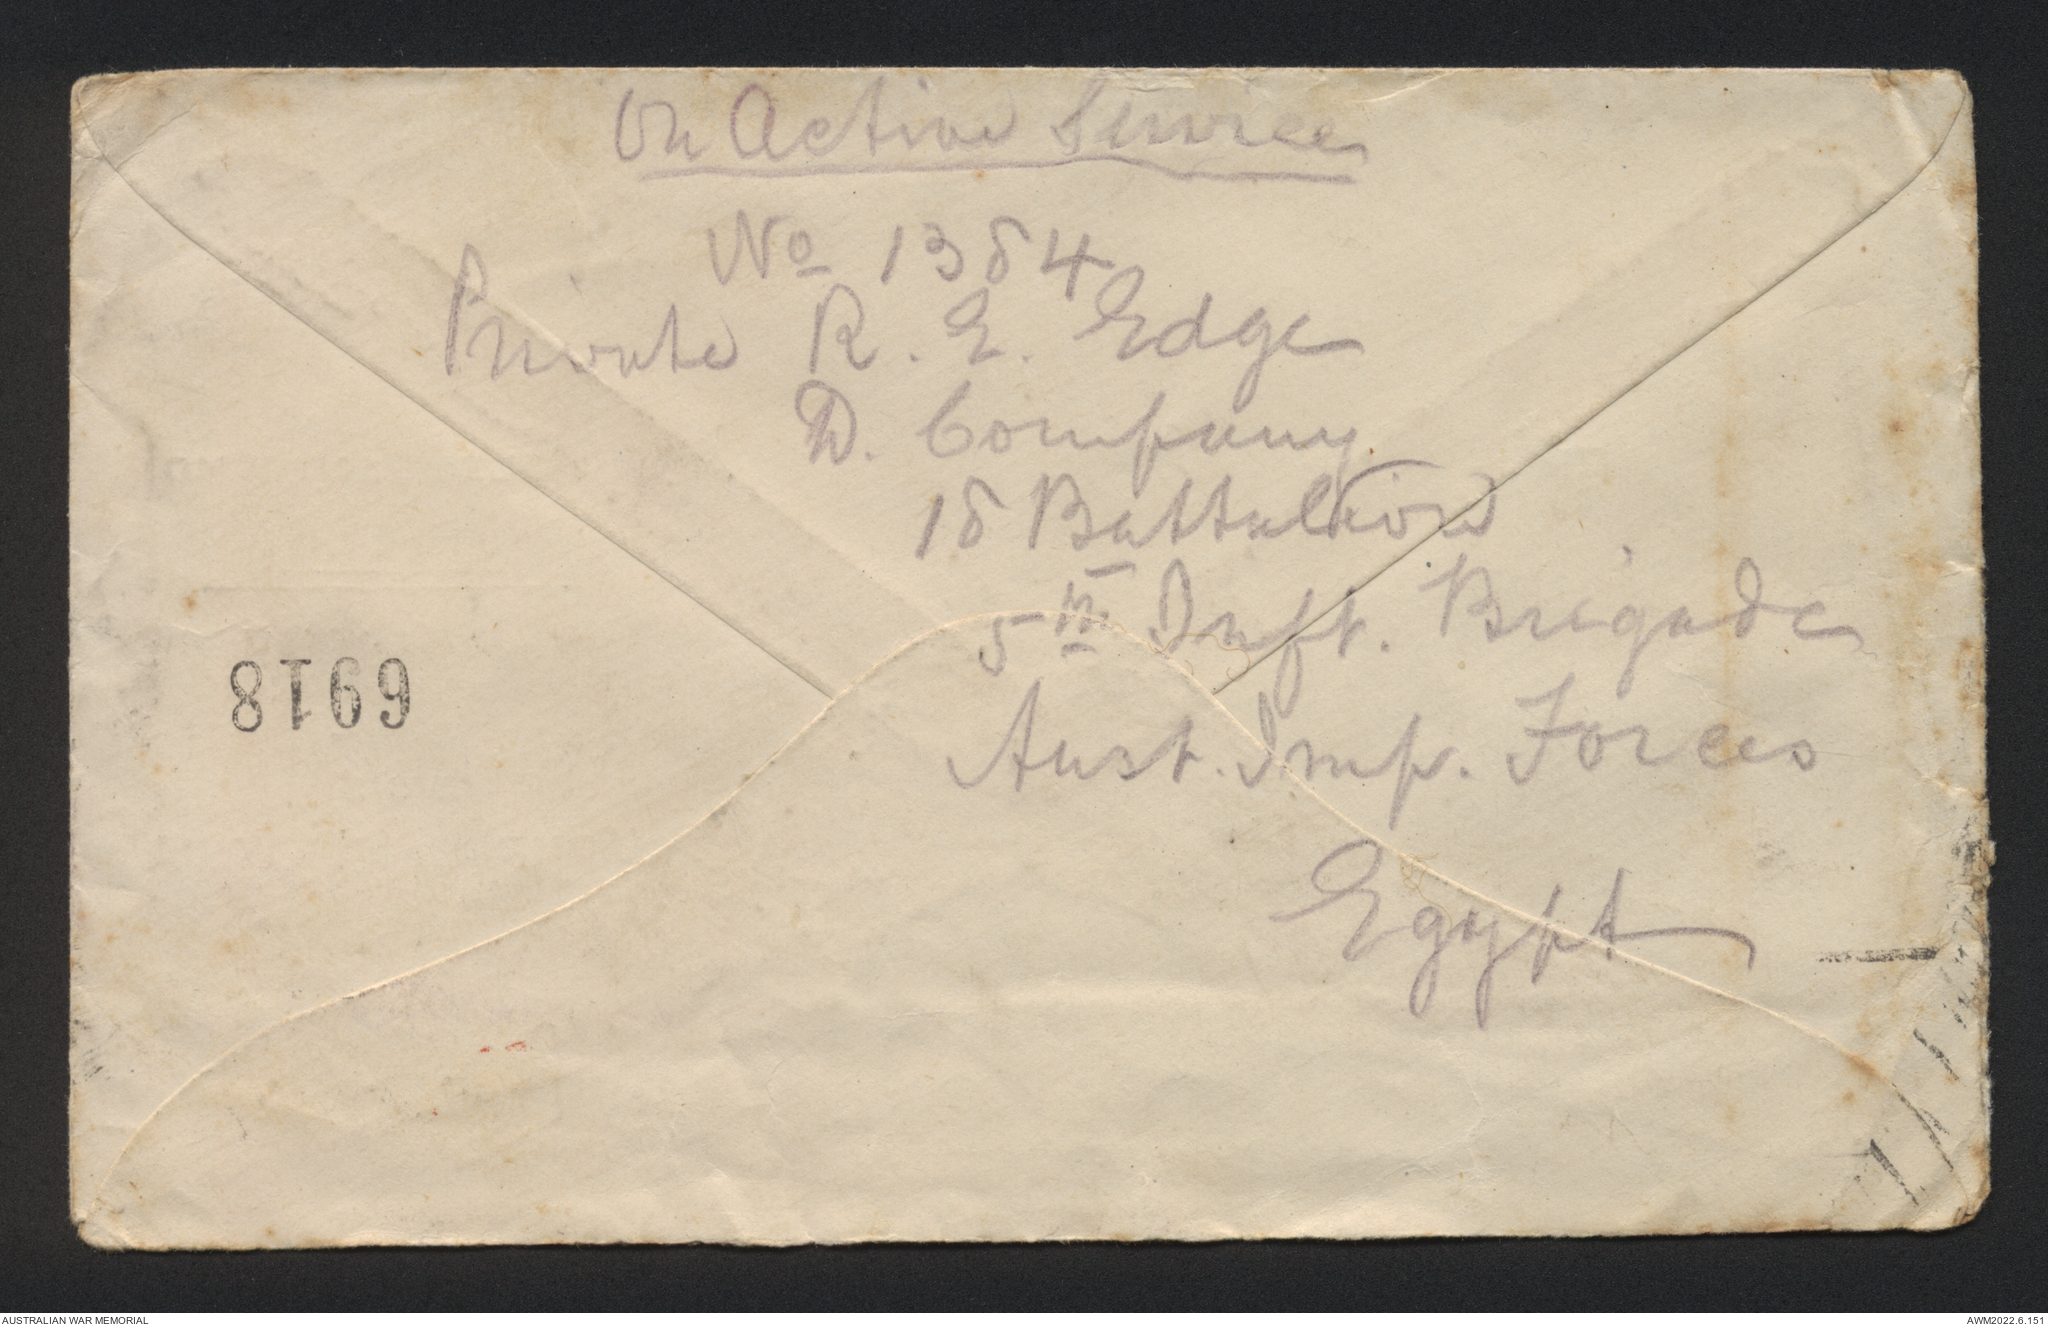 On Active Service
No 1384
Private R. E. Edge
D. Company
18 Battalion
5th Inft. Brigade
Aust. Imp. Forces
Egypt
6918
AUSTRALIAN WAR MEMORIAL
AWM2022.6.151